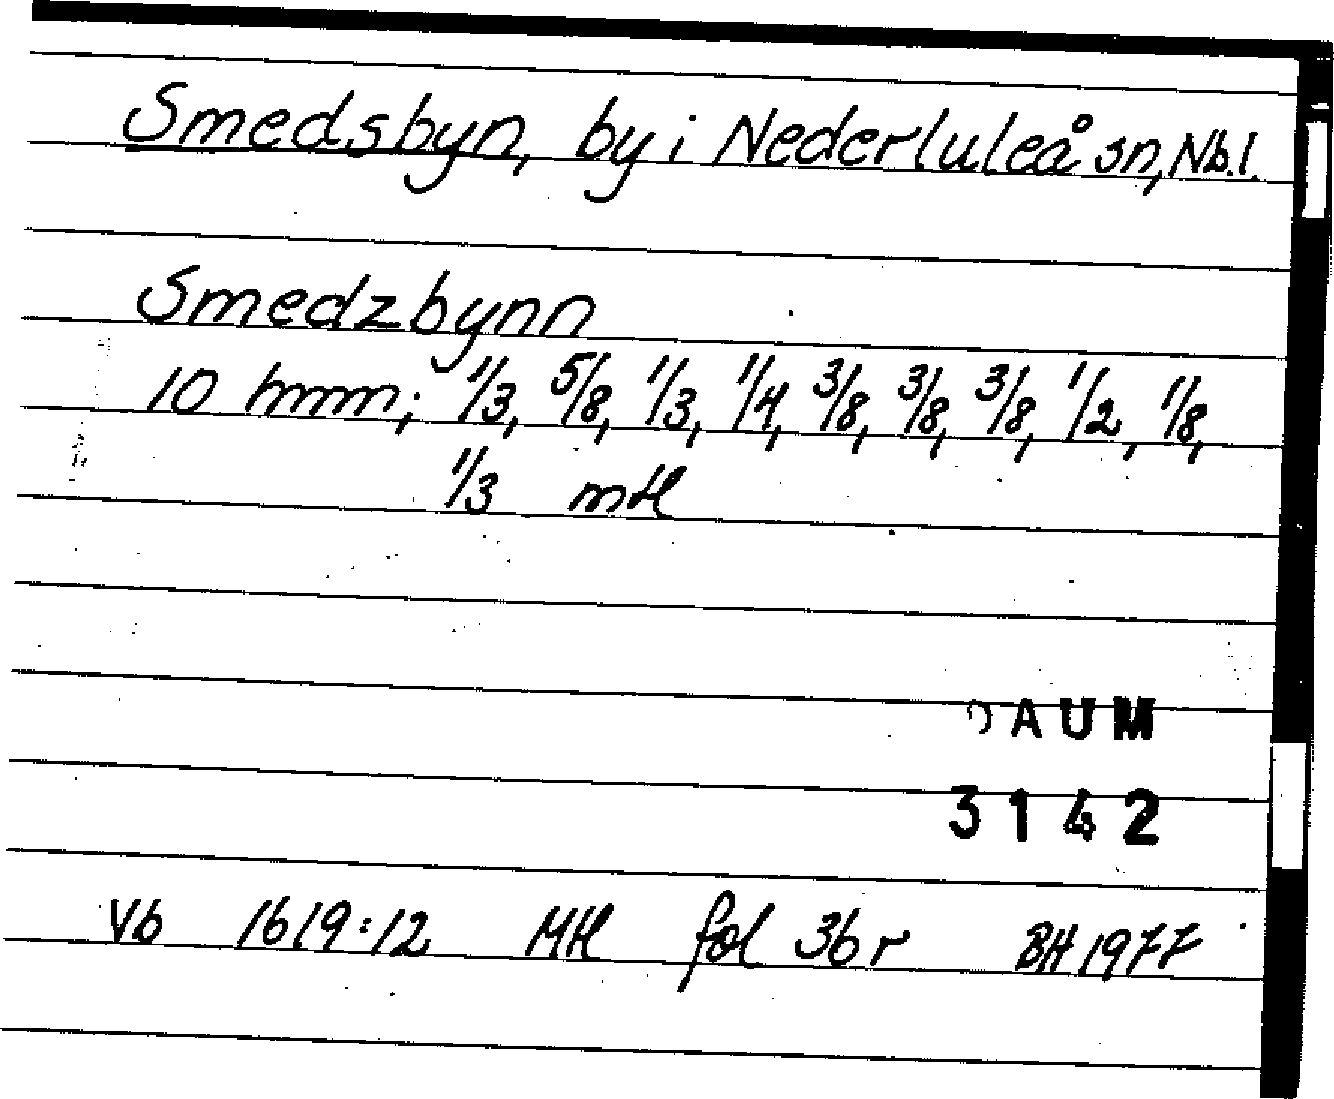 Smedsbyn, by i Nederluleå sn, Nb.l.
Smedzbynn
10 hmm; 1/3, 5/8, 1/3, 1/4, 3/8, 3/8, 3/8, 1/2, 1/8,
1/3 mtl
DAUM
3142
Vb 1619:12 Mtl fol 36 r BH 1977